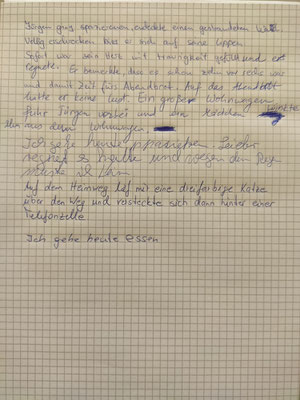 Jürgen ging spazieren, entdeckte einen gestrandeten Wal.
Völlig erschrocken biss er sich auf seine Lippen
Sofort war sein Herz mit Traurigkeit gefüllt und er
regnete. Er bemerkte, dass es schon zehn vor sechs war
und damit Zeit für Abendbrot. Auf das
hatte er keine Lust. Ein großer Wohnwagen
fuhr Jürgen vorbei und ein Mädchen winkte
ihm aus dem Wohnwagen
Ich gehe heute spazieren Leider
regnet es heute und gegen den Regen
Auf dem Heimweg lief mir eine dreifarbige Katze
über den Weg und versteckte sich dann hinter einer
Telefonzelle.
Ich gehe heute essen